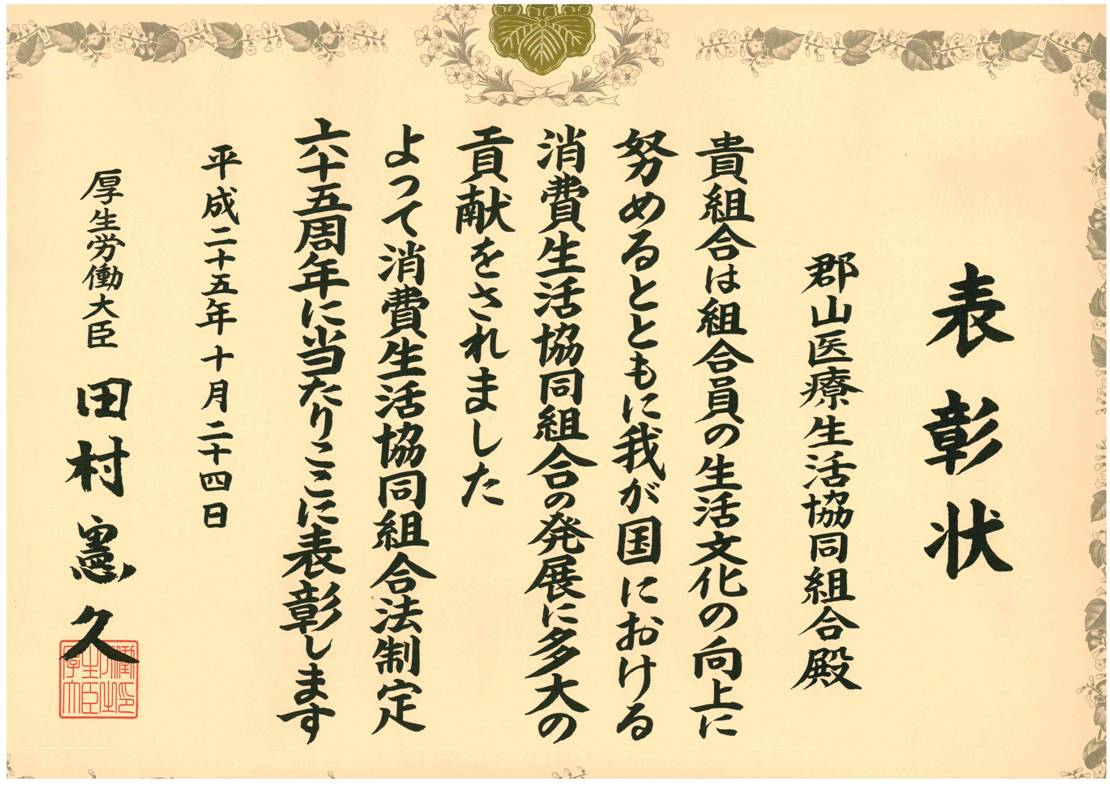 表彰状
郡山医療生活協同組合殿
貴組合は組合員の生活文化の向上に
努めるとともに我が国における
消費生活協同組合の発展に多大の
貢献をされました
よって消費生活協同組合法制定
六十五周年に当たりここに表彰します
平成二十五年十月二十四日
厚生労働大臣 田村憲久
厚生労働大臣印